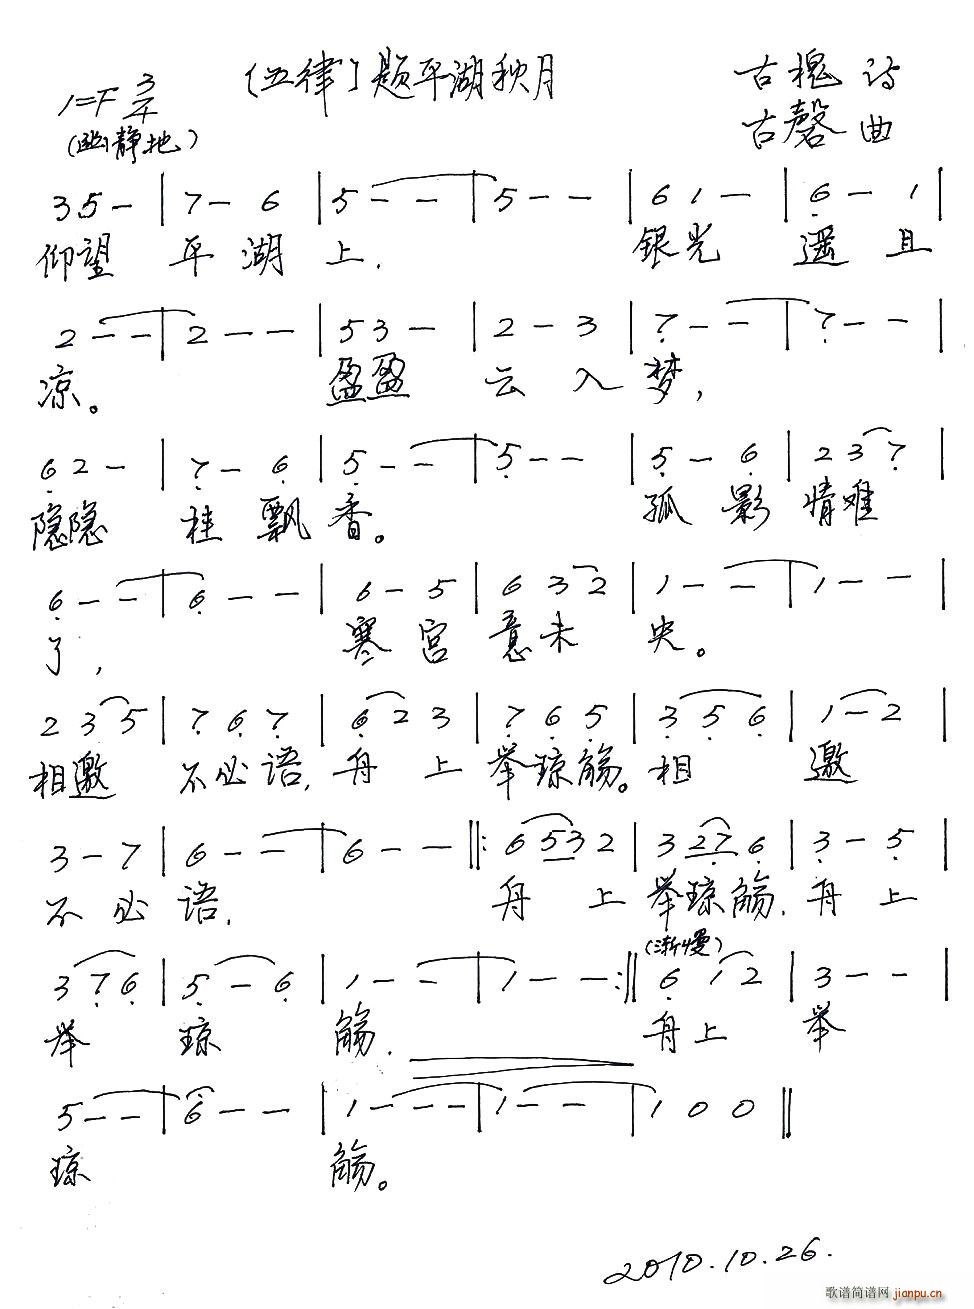 〔五律〕题平湖秋月
1=F 3/4
(幽静地)
古槐 诗
古磬 曲
3 5 - | 7 - 6 | 5 - - | 5 - - | 6 1 - | 6 - 1 |
仰望 平 湖 上, 银光 遥 且
2 - - | 2 - - | 5 3 - | 2 - 3 | 7 - - | 7 - - |
凉。 盈盈 云 入 梦,
6 2 - | 7 - 6 | 5 - - | 5 - - | 5 - 6 | 2 3 7 |
隐隐 桂 飘 香。 孤 影 情难
6 - - | 6 - - | 6 - 5 | 6 3 2 | 1 - - | 1 - - |
了, 寒 宫 意未 央。
2 3 5 | 7 6 7 | 6 2 3 | 7 6 5 | 3 5 6 | 1 - 2 |
相邀 不必语, 舟 上 举琼觞。相 邀
3 - 7 | 6 - - | 6 - - ‖: 6 5 3 2 | 3 2 7 6 | 3 - 5 |
不 必 语, 舟 上 举琼觞, 舟 上
(渐慢)
3 7 6 | 5 - 6 | 1 - - | 1 - - :‖ 6 1 2 | 3 - - |
举 琼 觞, 舟 上 举
5 - - | 6 - - | 1 - - - | 1 - - | 1 0 0 ‖
琼 觞。
2010.10.26.
歌谱简谱网 jianpu.cn